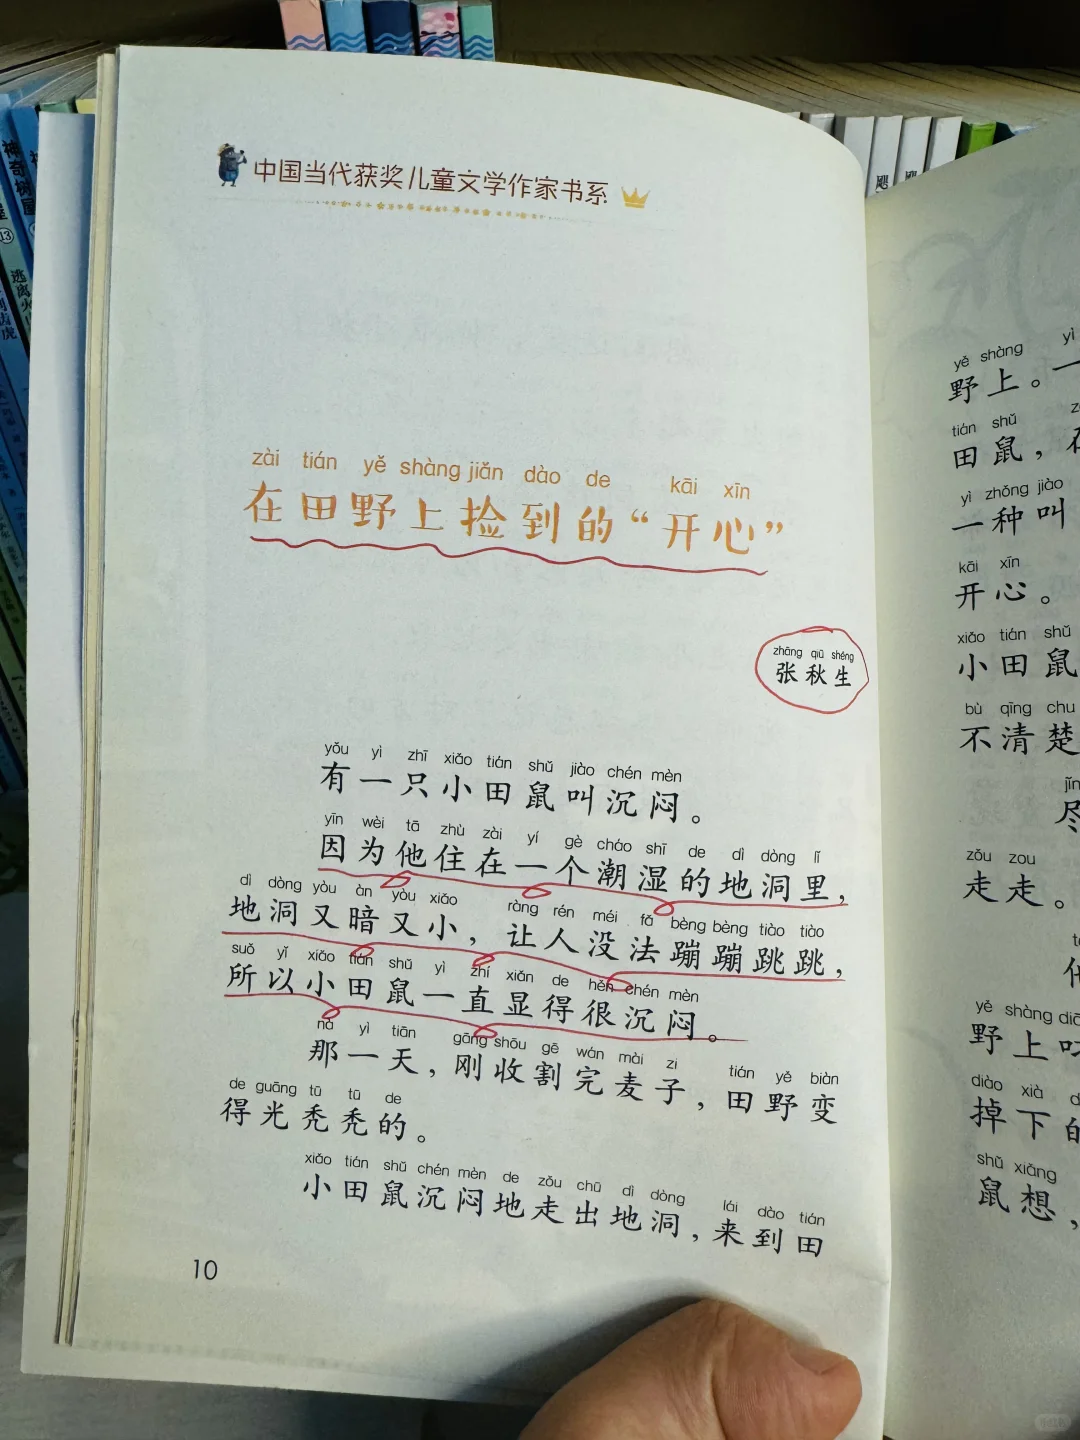 中国当代获奖儿童文学作家书系
zài tián yě shàng jiǎn dào de kāi xīn
在田野上捡到的“开心”
zhāng qiū shēng
张秋生
yǒu yì zhī xiǎo tián shǔ jiào chén mèn
有一只小田鼠叫沉闷。
yīn wèi tā zhù zài yí gè cháo shī de dì dòng lǐ
因为他住在一个潮湿的地洞里，
dì dòng yòu àn yòu xiǎo ràng rén méi fǎ bèng bèng tiào tiào
地洞又暗又小，让人没法蹦蹦跳跳，
suǒ yǐ xiǎo tián shǔ yì zhí xiǎn de hěn chén mèn
所以小田鼠一直显得很沉闷。
nà yì tiān gāng shōu gē wán mài zi tián yě biàn
那一天，刚收割完麦子，田野变
de guāng tū tū de
得光秃秃的。
xiǎo tián shǔ chén mèn de zǒu chū dì dòng lái dào tián
小田鼠沉闷地走出地洞，来到田
10
yě shàng yì
野上。一
tián shǔ
田鼠，
yì zhǒng jiào
一种叫
kāi xīn
开心。
xiǎo tián shǔ
小田鼠
bù qīng chu
不清楚
jǐn
尽
zǒu zou
走走。
yě shàng
野上
diào xià
掉下的
shǔ xiǎng
鼠想，
神奇树屋
13